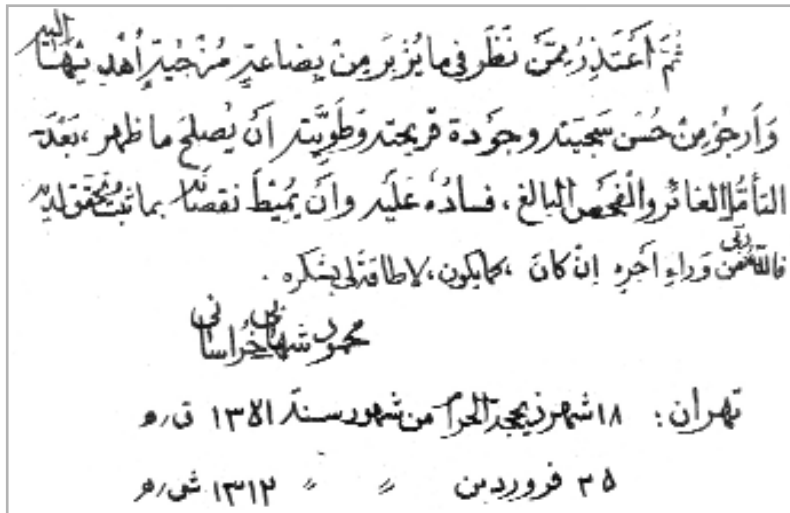 ثُمَ اَعْتَذِرُ مِمَّنْ نَظَرَ فی ما یُزْبَرُ مِنْ بِضاعَةٍ مُزْجیةٍ اُهْدِیتُها اِلَیهِ
وَ اَرجُوُ مِنْ حُسْنِ سَجیّته وجَوْدة قریحته وَطَوِیَّته اَنْ یُصلِحَ ما ظهر، بَعْدَ
التأمّل الغائر والفحص البالغ، فسادُهُ عَلَیه وانْ یُمیْطَ نقصانَه بما ثَبُتَ لدیه
فاللّه رَبّی مِن وَراءِ اَجره اِنْ کانَ، کما یکون، لا طاقة لی بشکره.
محمود شهابی خُراسانی
تهران: ۱۸ شهر ذیحجة الحرام من شهور سنة ۱۳۵۱ ق.ه
۲۵ فروردین 〃 〃 ۱۳۱۲ ش.ه